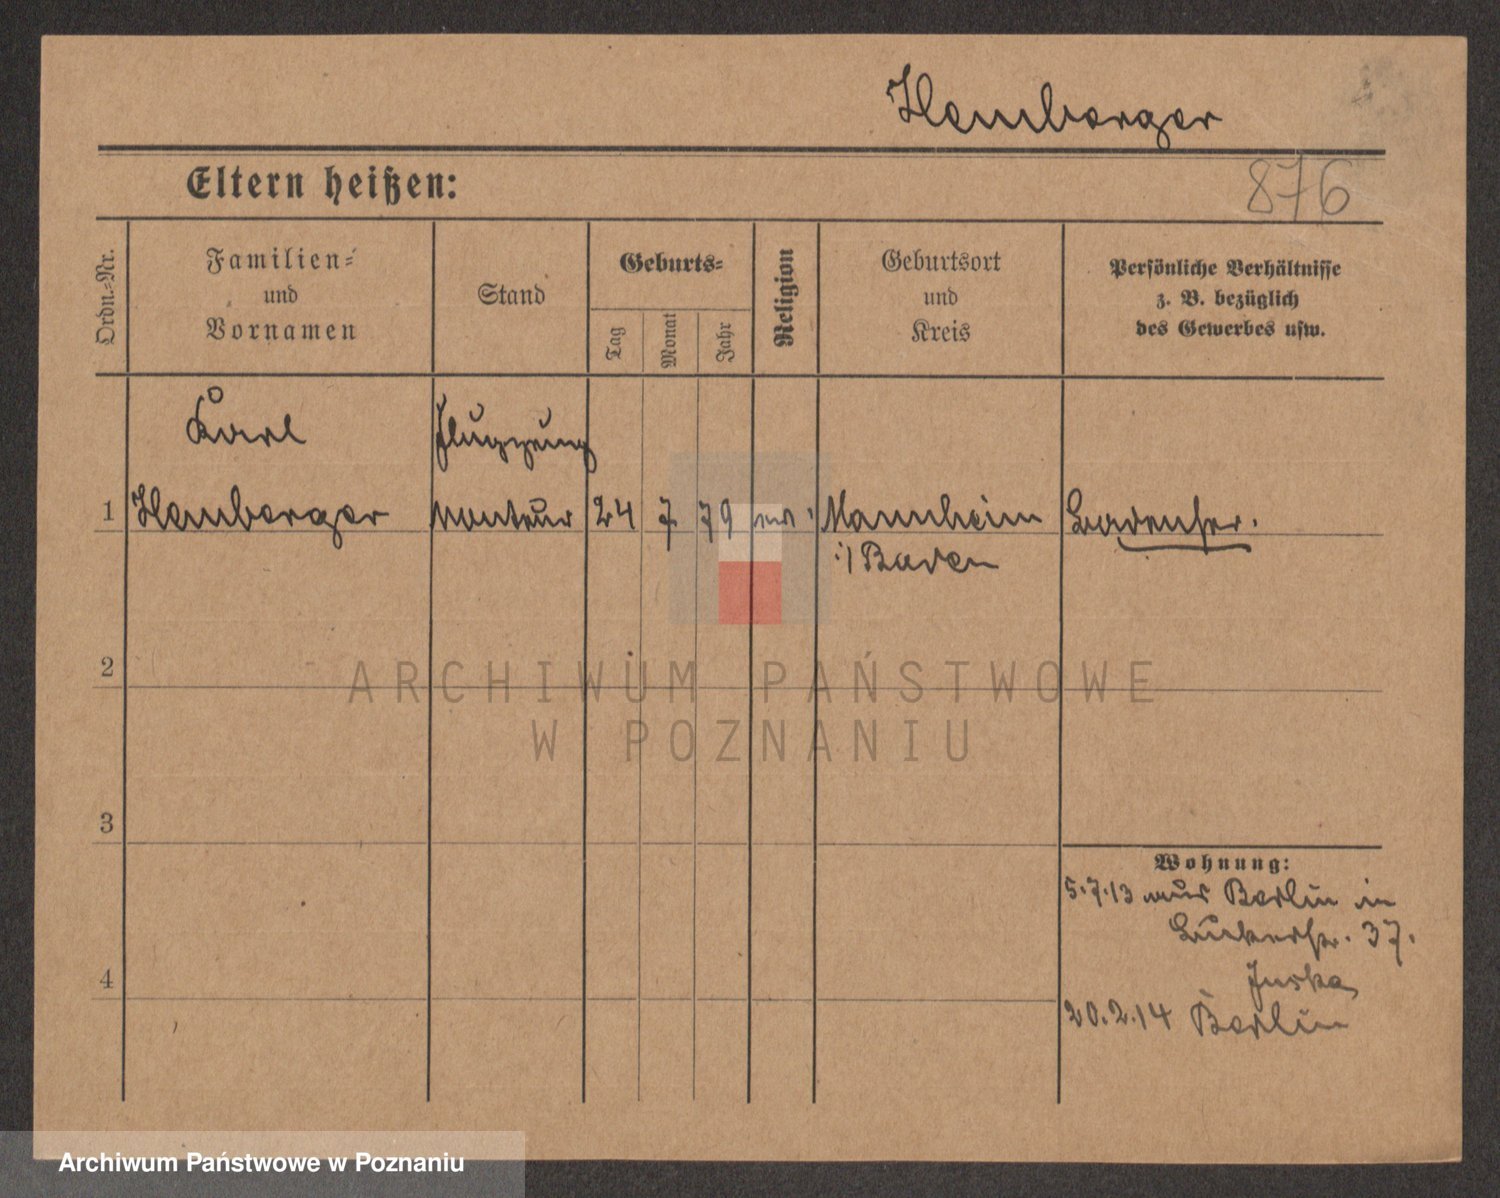 Hemberger
Eltern heißen:
876
Ordn.-Nr.
Familien-
und
Vornamen
Stand
Geburts-
Tag
Monat
Jahr
Religion
Geburtsort
und
Kreis
Persönliche Verhältnisse
z. B. bezüglich
des Gewerbes usw.
Karl
Flugzeug
1 Hemberger monteur 24 7 79 Mannheim Badenser.
i/ Baden
2
3
4
Wohnung:
5.7.13 aus Berlin in
37.
20.2.14 Berlin
ARCHIWUM PAŃSTWOWE
W POZNANIU
Archiwum Państwowe w Poznaniu